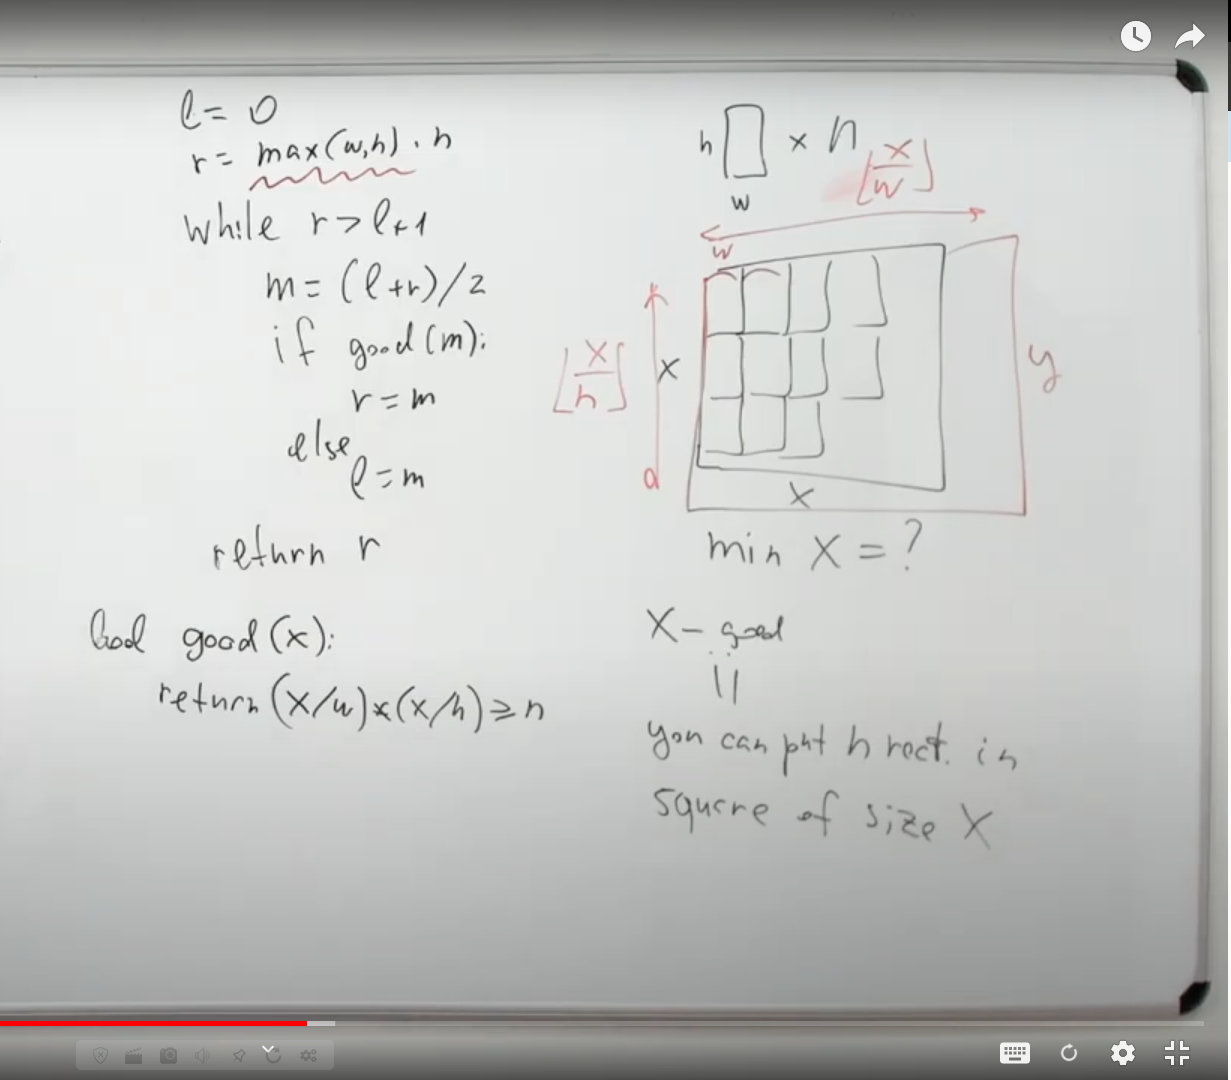 l = 0
r = max(w,h) · n
while r > l+1
m = (l+r)/2
if good(m):
r = m
else
l = m
return r
bool good(x):
return (x/w)*(x/h) ≥ n
h × n
w
⌊x/w⌋
w
⌊x/h⌋
x
y
x
min X = ?
X – good
you can put n rect. in
square of size X